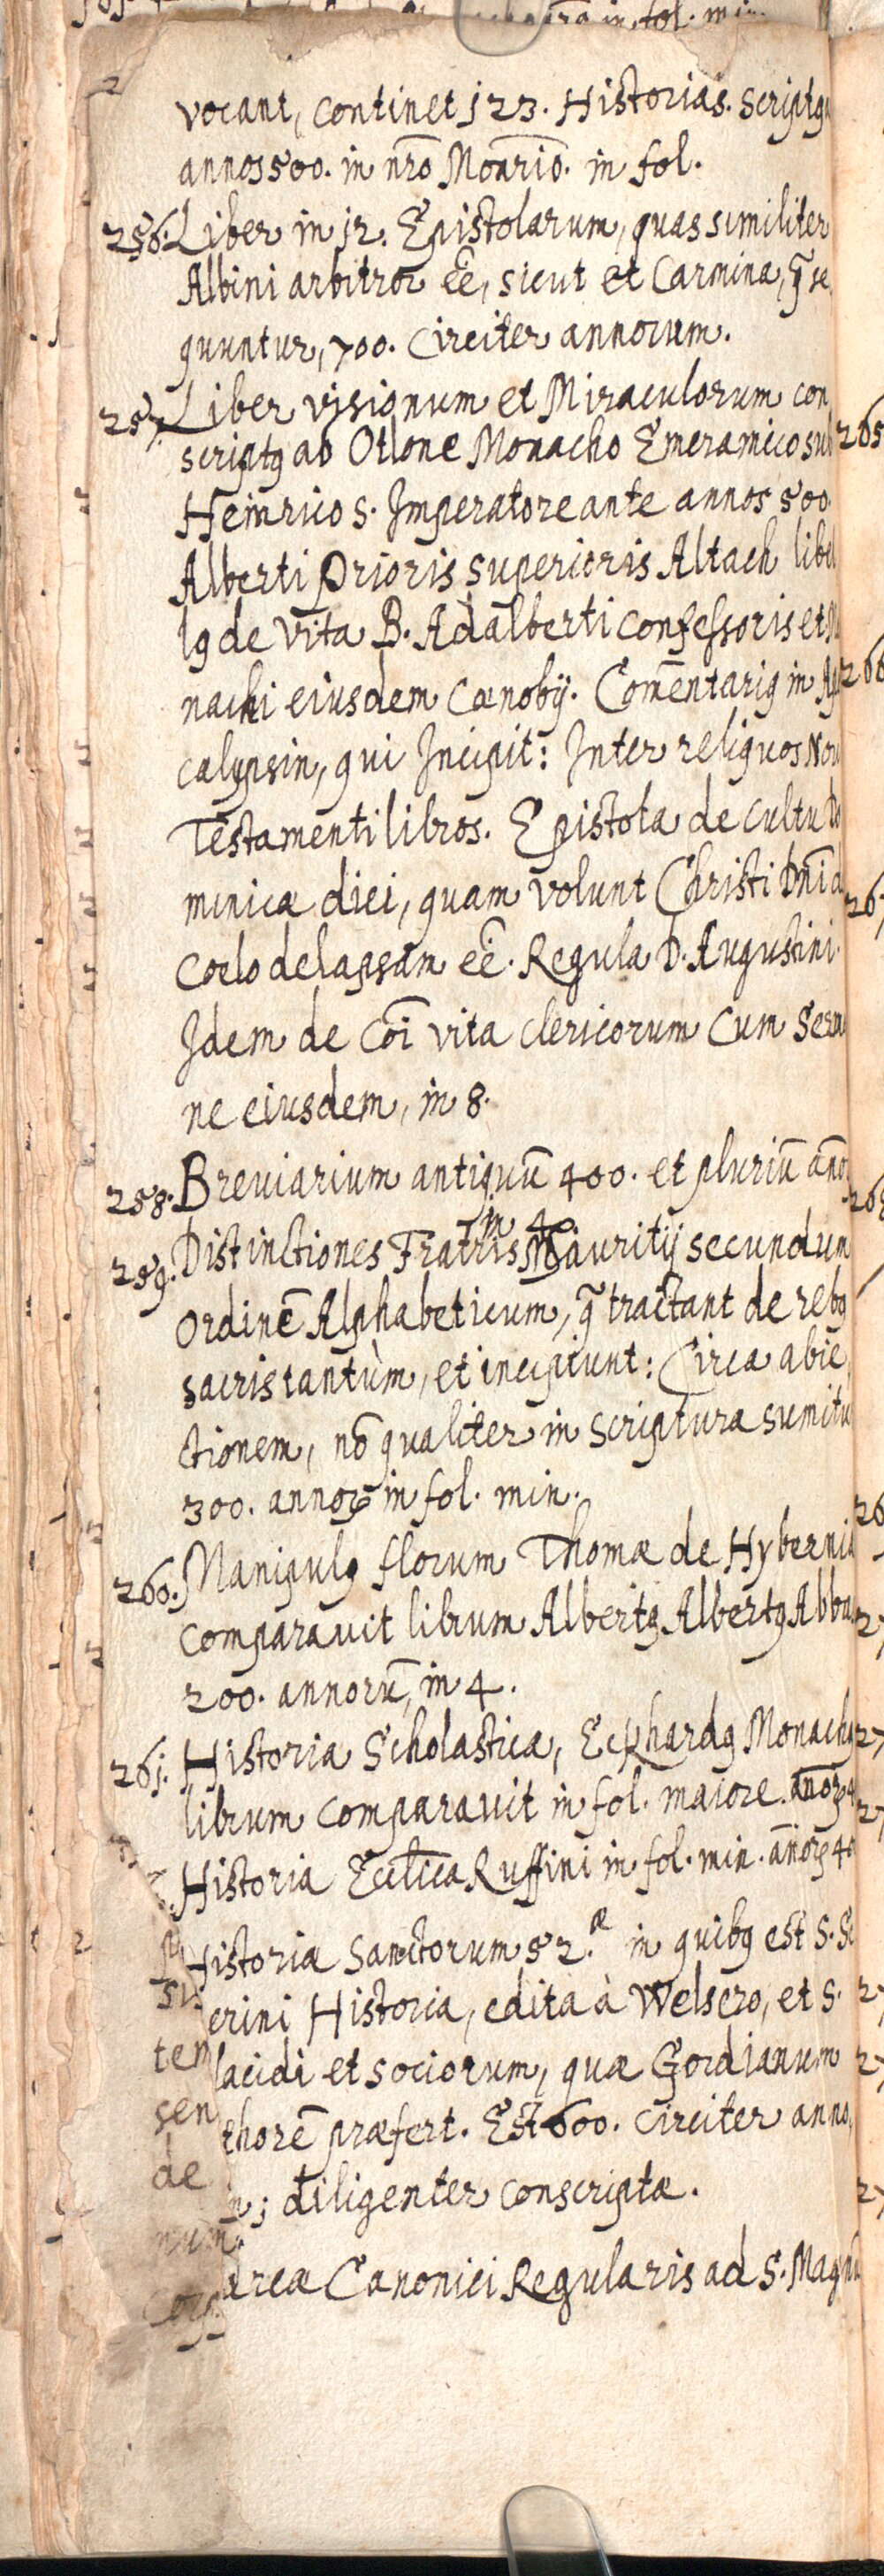 vocant, continet 123. Historias. Scriptq
annos 500. in nr̃o Moãrio. in fol.
256. Liber in 12. Epistolarum, quas similiter
Albini arbitror eẽ, sicut et Carmina, q̃ se
quuntur, 700. Circiter annorum.
257. Liber visionum et Miraculorum con
scriptq ab Otlone Monacho Emeramico sub
Heinrico 5. Imperatore ante annos 500.
Alberti Prioris superioris Altach libel
lq de vita B. Adalberti confessoris et
nachi eiusdem Cœnobij. Com̃entariq in Apo
calypsin, qui Incipit: Inter reliquos Nou
Testamenti libros. Epistola de cultu Do
minicæ diei, quam volunt Christi Dñi d
Coelo delapsam eẽ. Regula D. Augustini.
Idem de Cõi vita clericorum Cum Serm
ne eiusdem, in 8.
258. Breviarium antiquũ 400. et pluriũ anõ
in 4o
259. Distinctiones Fratris Mauritij secundum
Ordinẽ Alphabeticum, q̃ tractant de rebq
sacris tantùm, et incipiunt: Circa abie
ctionem, nõ qualiter in Scriptura sumitu
300. annoꝝ in fol. min.
260. Manipulq florum Thomæ de Hybernia
comparavit librum Albertq Albertq Abba
200. annorũ, in 4.
261. Historia Scholastica, Eckhardq Monachq
librum comparavit in fol. maiore. anõꝝ 4
Historia Ecctica Ruffini in fol. min. añoꝝ 40
Historiæ Sanctorum 52.æ in quibq est S. Se
erini Historia, edita à Welsero, et S.
lacidi et sociorum, quæ Gordianum
thorẽ præfert. Est 600. circiter anno
; diligenter conscriptæ.
arcæ Canonici Regularis ad S. Magnũ